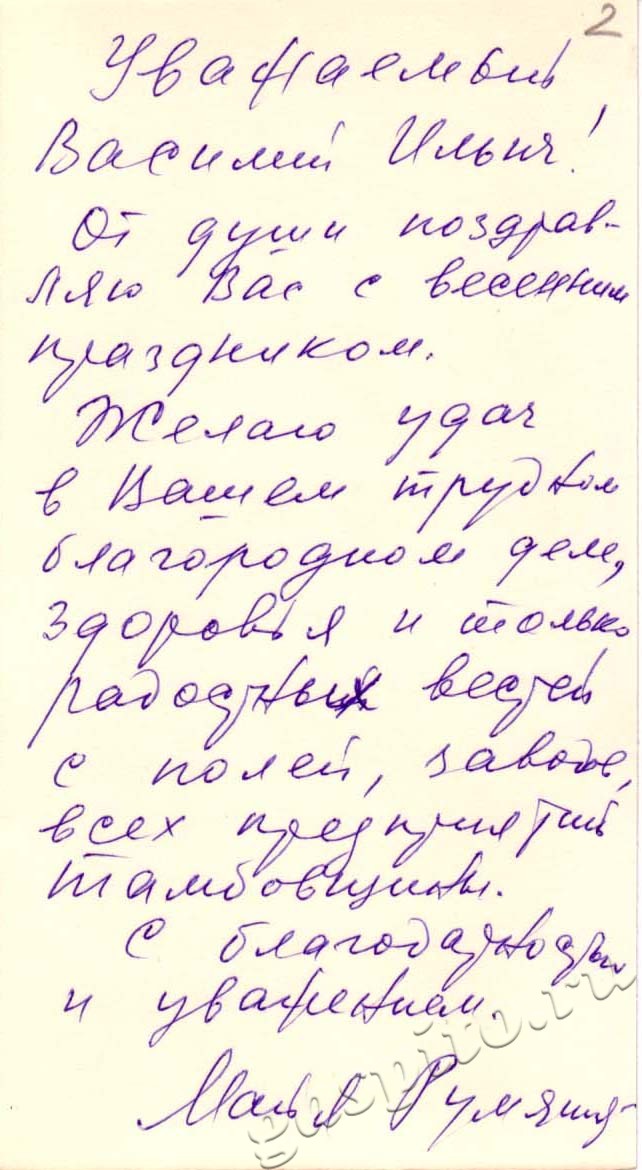 2
Уважаемый
Василий Ильич!
От души поздрав-
ляю Вас с весенним
праздником.
Желаю удач
в Вашем трудном
благородном деле,
здоровья и только
радостных вестей
с полей, заводов,
всех предприятий
Тамбовщины.
С благодарностью
и уважением.
Майя Румянц
gaspito.ru